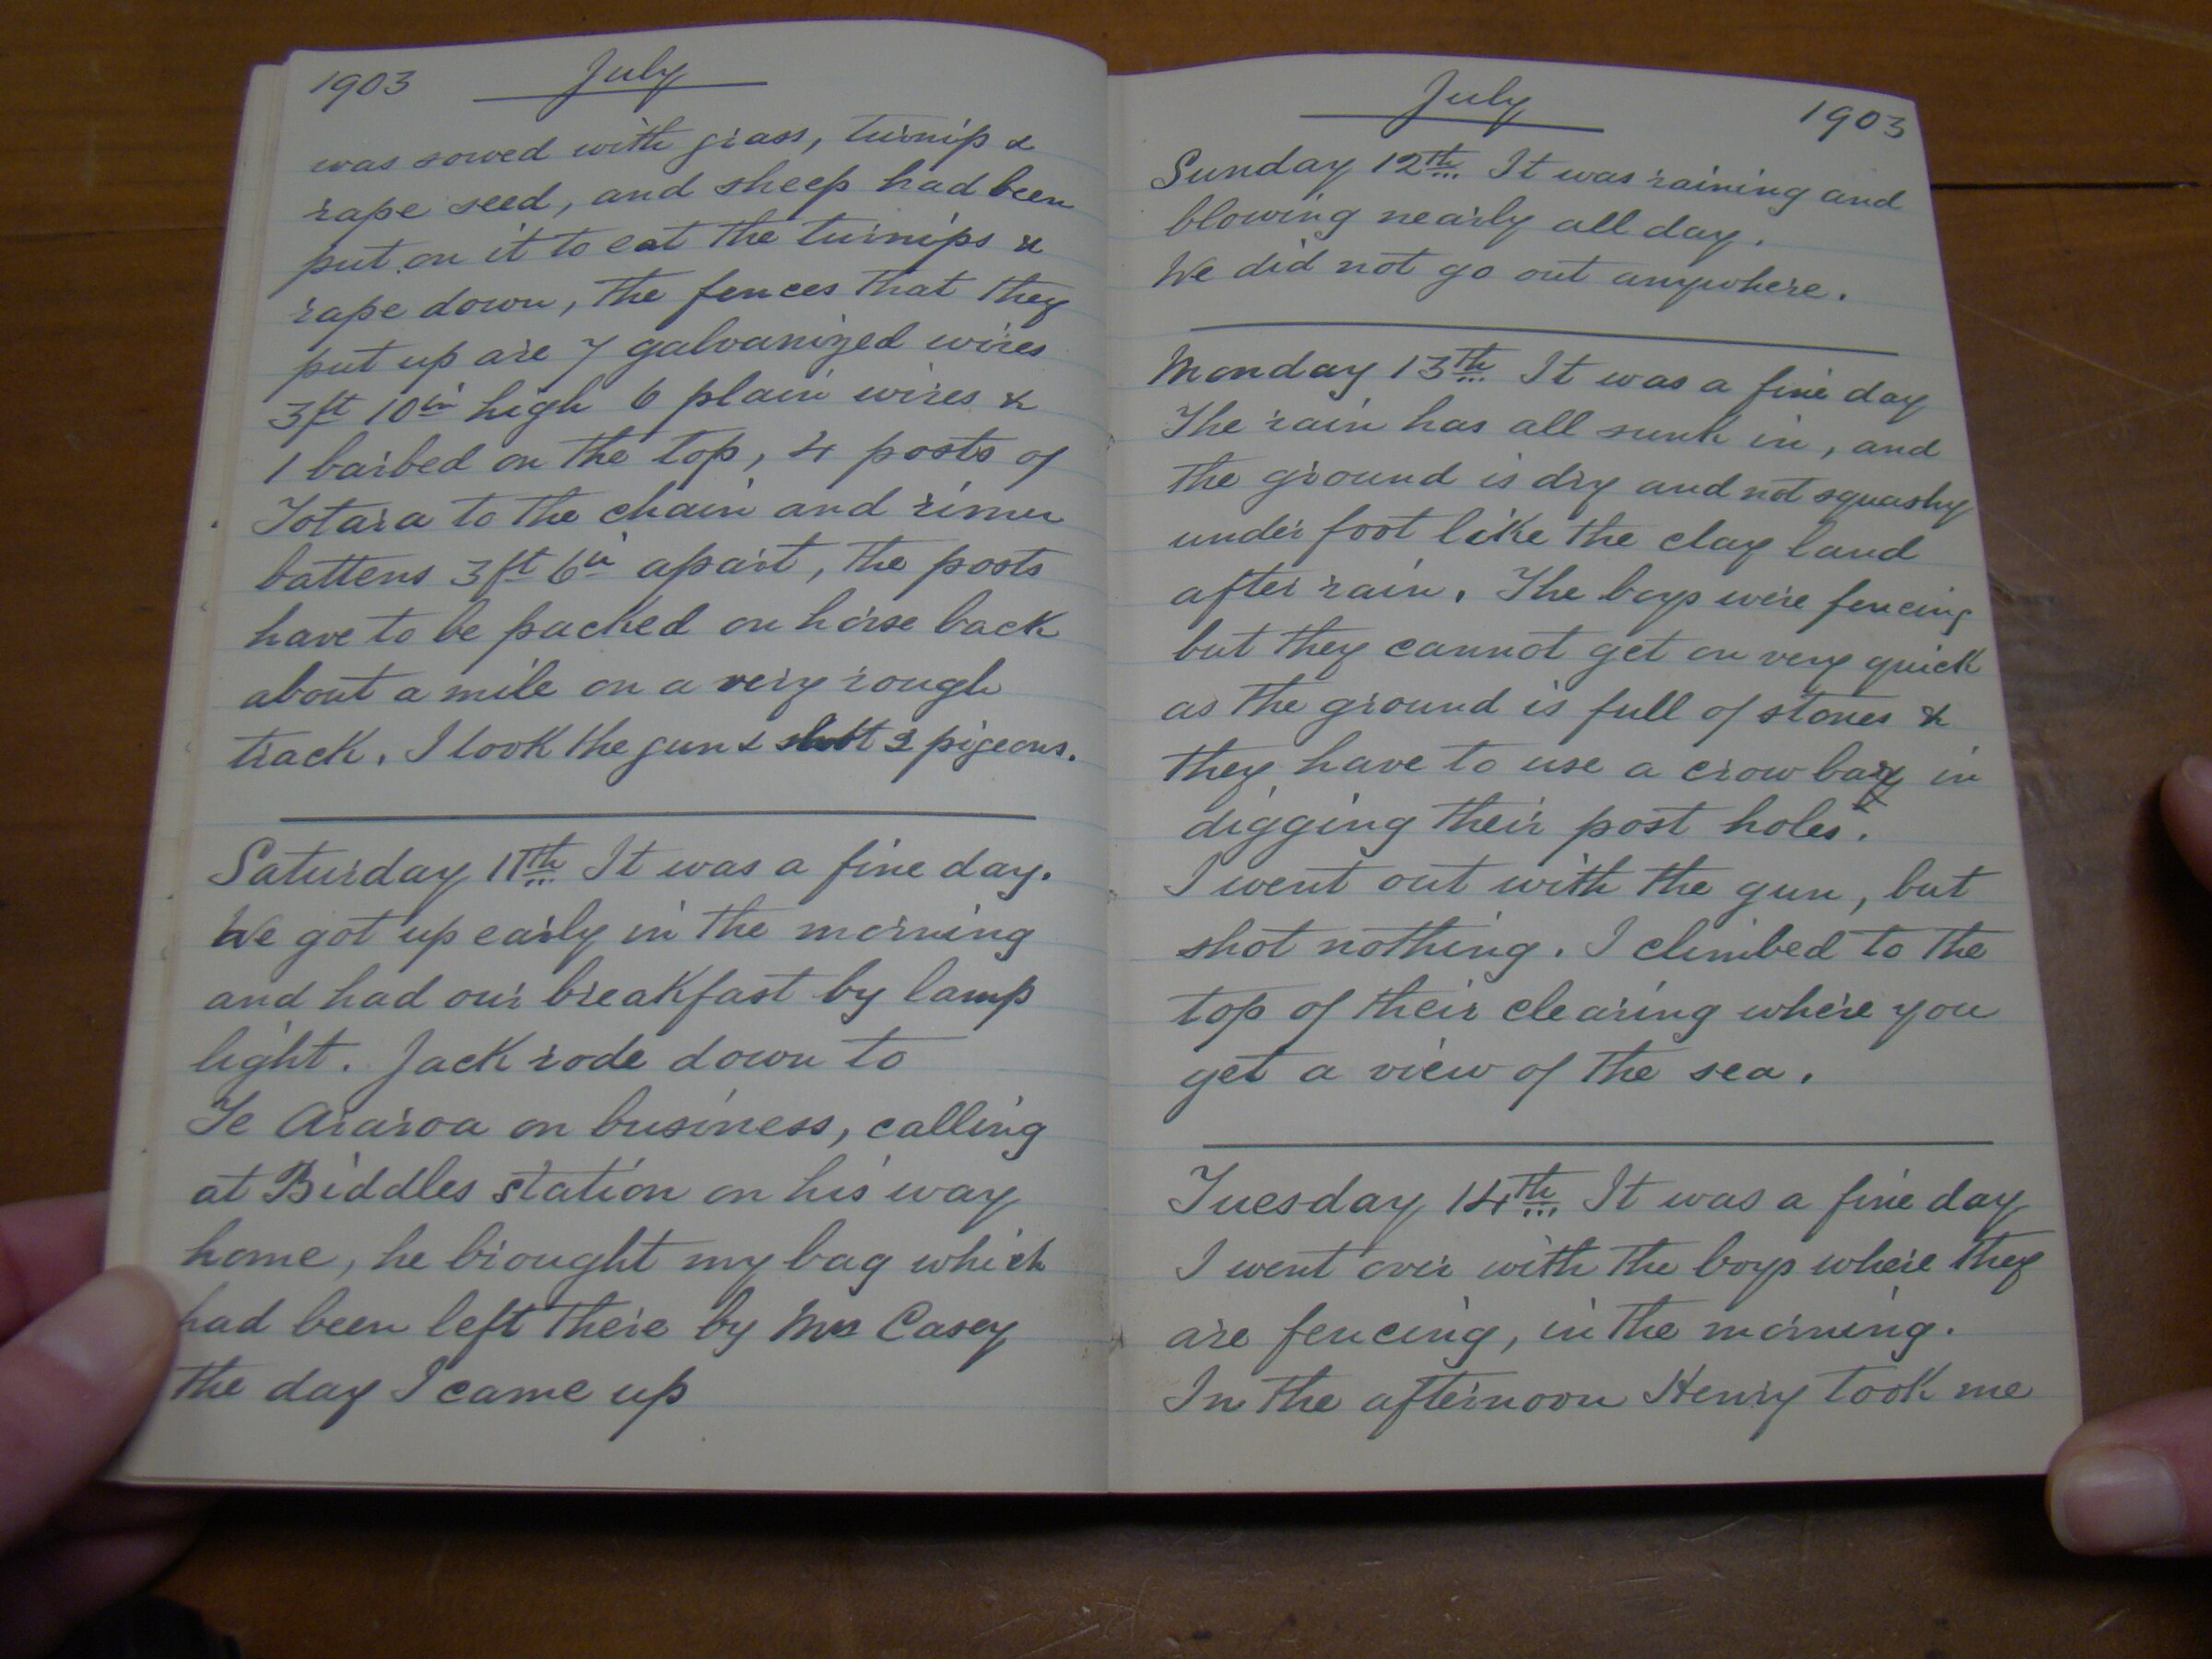 1903 July
was sowed with grass, turnip &
rape seed, and sheep had been
put on it to eat the turnips &
rape down, the fences that they
put up are 7 galvanized wires
3ft 10in high 6 plain wires &
1 barbed on the top, 4 posts of
Totara to the chain and rimu
battens 3ft 6in apart, the posts
have to be packed on horse back
about a mile on a very rough
track. I took the gun & shot 2 pigeons.
Saturday 11th It was a fine day.
We got up early in the morning
and had our breakfast by lamp
light. Jack rode down to
Te Araroa on business, calling
at Biddles station on his way
home, he brought my bag which
had been left there by Mrs Casey
the day I came up
July 1903
Sunday 12th It was raining and
blowing nearly all day.
We did not go out anywhere.
Monday 13th It was a fine day
The rain has all sunk in, and
the ground is dry and not squashy
under foot like the clay land
after rain. The boys were fencing
but they cannot get on very quick
as the ground is full of stones &
they have to use a crow bar in
digging their post holes.
I went out with the gun, but
shot nothing. I climbed to the
top of their clearing where you
get a view of the sea.
Tuesday 14th It was a fine day
I went over with the boys where they
are fencing, in the morning.
In the afternoon Henry took me